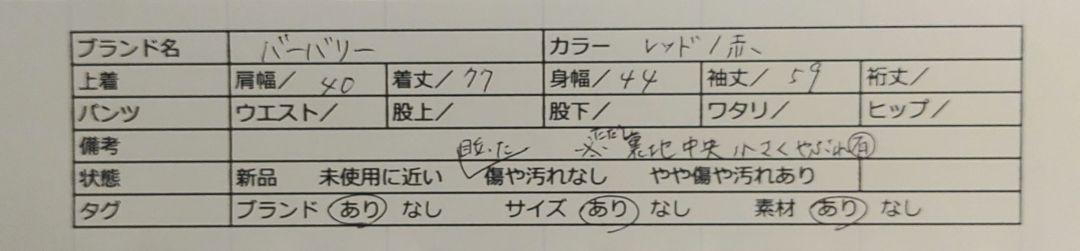 ブランド名 バーバリー カラー レッド/赤
上着 肩幅/ 40 着丈/ 77 身幅/ 44 袖丈/ 59 裄丈/
パンツ ウエスト/ 股上/ 股下/ ワタリ/ ヒップ/
備考 ※ただし裏地中央小さくやぶれ有
目立った
状態 新品 未使用に近い 傷や汚れなし やや傷や汚れあり
タグ ブランド あり なし サイズ あり なし 素材 あり なし